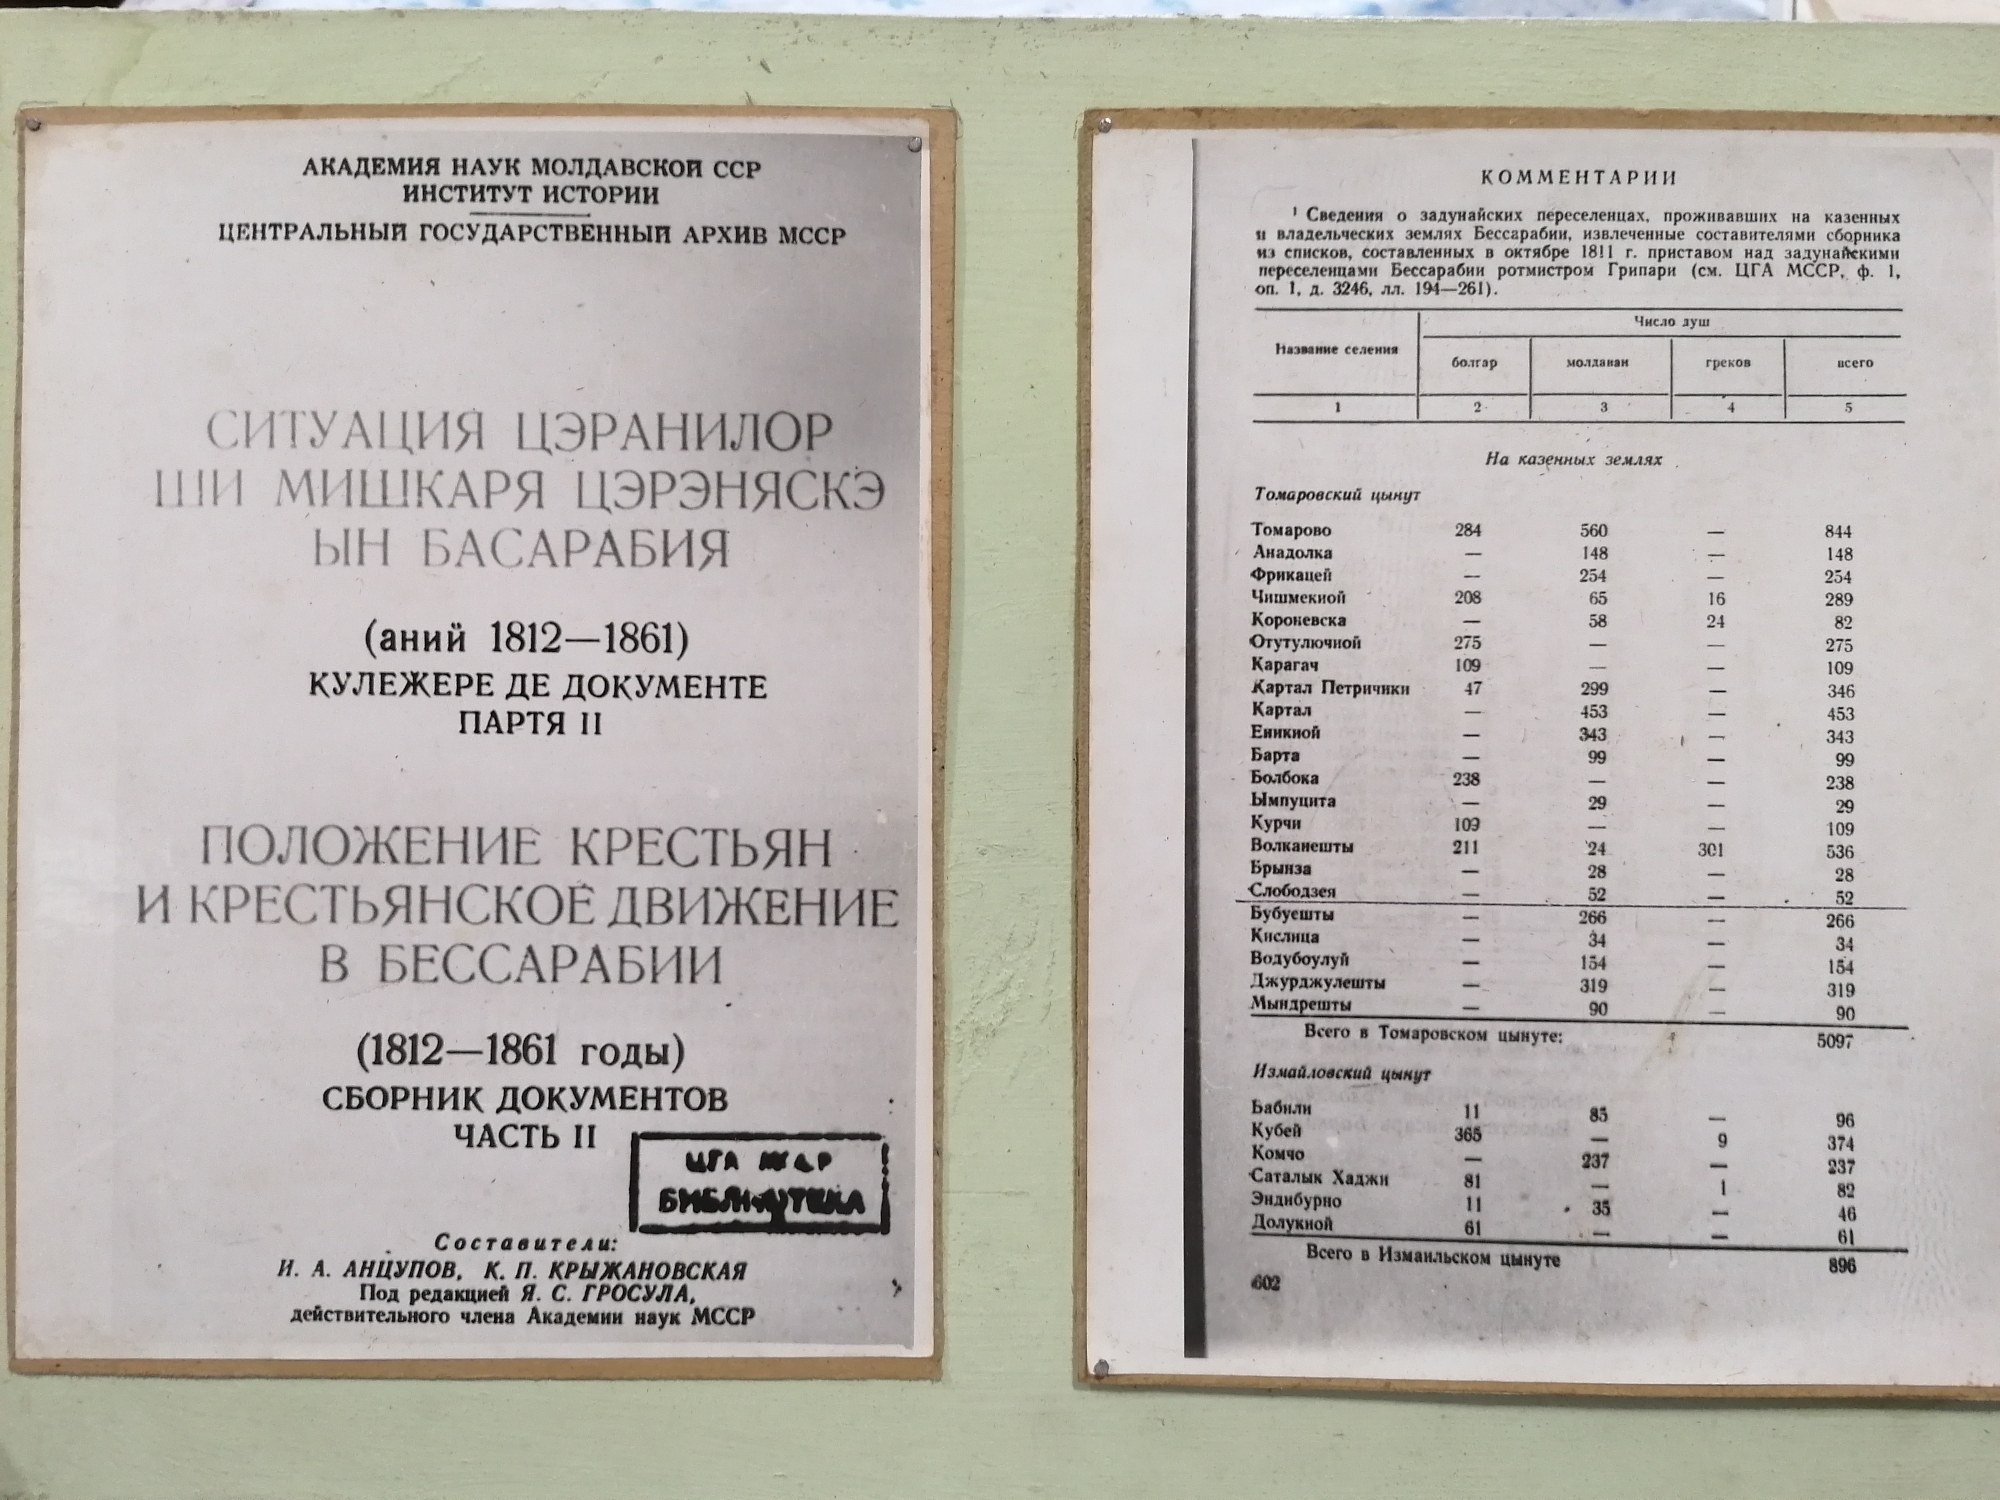 АКАДЕМИЯ НАУК МОЛДАВСКОЙ ССР
ИНСТИТУТ ИСТОРИИ
ЦЕНТРАЛЬНЫЙ ГОСУДАРСТВЕННЫЙ АРХИВ МССР
СИТУАЦИЯ ЦЭРАНИЛОР
ШИ МИШКАРЯ ЦЭРЭНЯСКЭ
ЫН БАСАРАБИЯ
(аний 1812—1861)
КУЛЕЖЕРЕ ДЕ ДОКУМЕНТЕ
ПАРТЯ II
ПОЛОЖЕНИЕ КРЕСТЬЯН
И КРЕСТЬЯНСКОЕ ДВИЖЕНИЕ
В БЕССАРАБИИ
(1812—1861 годы)
СБОРНИК ДОКУМЕНТОВ
ЧАСТЬ II
ЦГА
БИБЛИОТЕКА
Составители:
И. А. АНЦУПОВ, К. П. КРЫЖАНОВСКАЯ
Под редакцией Я. С. ГРОСУЛА,
действительного члена Академии наук МССР
КОММЕНТАРИИ
¹ Сведения о задунайских переселенцах, проживавших на казенных
и владельческих землях Бессарабии, извлеченные составителями сборника
из списков, составленных в октябре 1811 г. приставом над задунайскими
переселенцами Бессарабии ротмистром Грипари (см. ЦГА МССР, ф. 1,
оп. 1, д. 3246, лл. 194—261).
Название селения Число душ
болгар молдаван греков всего
1 2 3 4 5
На казенных землях
Томаровский цынут
Томарово 284 560 — 844
Анадолка — 148 — 148
Фрикацей — 254 — 254
Чишмекиой 208 65 16 289
Короневска — 58 24 82
Отутулючной 275 — — 275
Карагач 109 — — 109
Картал Петричики 47 299 — 346
Картал — 453 — 453
Еникиой — 343 — 343
Барта — 99 — 99
Болбока 238 — — 238
Ымпуцита — 29 — 29
Курчи 109 — — 109
Волканешты 211 24 301 536
Брынза — 28 — 28
Слободзея — 52 — 52
Бубуешты — 266 — 266
Кислица — 34 — 34
Водубоулуй — 154 — 154
Джурджулешты — 319 — 319
Мындрешты — 90 — 90
Всего в Томаровском цынуте: 5097
Измайловский цынут
Бабили 11 85 — 96
Кубей 365 — 9 374
Комчо — 237 — 237
Саталык Хаджи 81 — 1 82
Эндибурно 11 35 — 46
Долукиой 61 — — 61
Всего в Измаильском цынуте 896
602